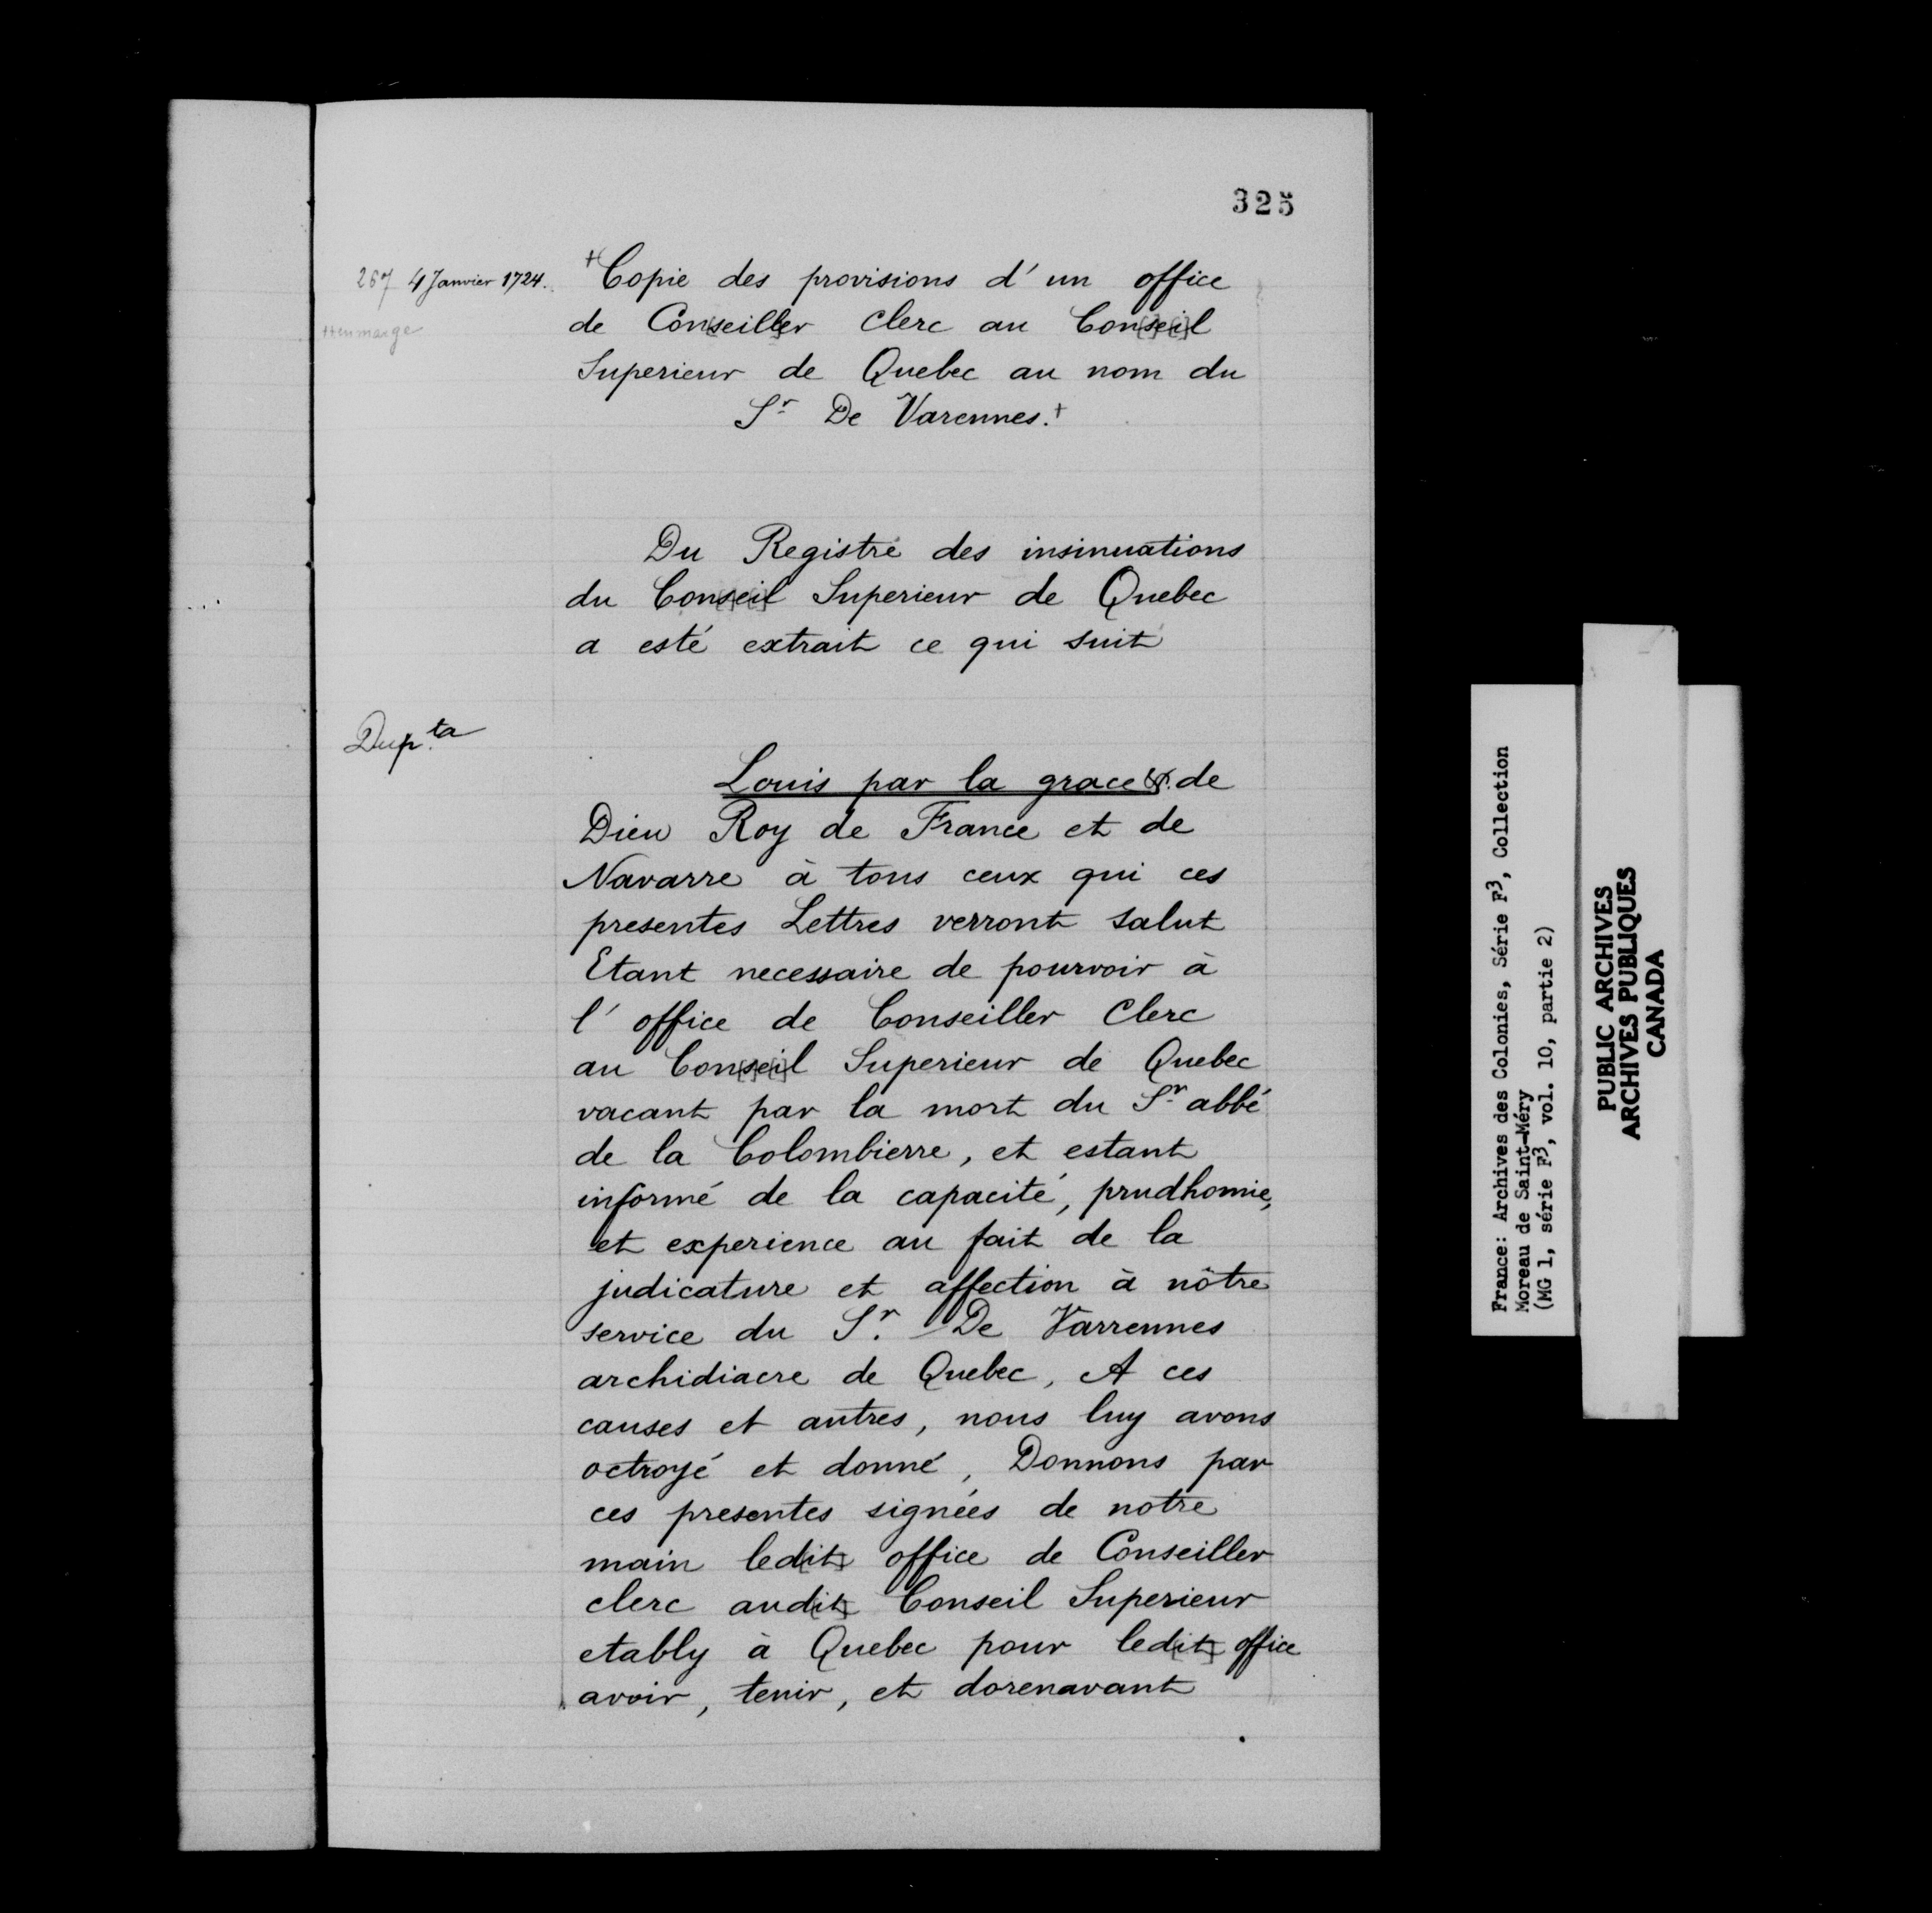 325
267 4 Janvier 1724.
+ en marge
+Copie des provisions d'un office
de Conseiller Clerc au Con[s]e[i]l
Superieur de Quebec au nom du
Sr De Varennes.+
Du Registre des insinuations
du Con[s]e[i]l Superieur de Quebec
a esté extrait ce qui suit
Dup.ta
Louis par la grace &. de
Dieu Roy de France et de
Navarre à tous ceux qui ces
presentes Lettres verront salut
Etant necessaire de pourvoir à
l'office de Conseiller Clerc
au Con[s]e[i]l Superieur de Quebec
vacant par la mort du Sr abbé
de la Colombierre, et estant
informé de la capacité, prudhomie,
et experience au fait de la
judicature et affection à nôtre
service du Sr. De Varrennes
archidiacre de Quebec, A ces
causes et autres, nous luy avons
octroyé et donné, Donnons par
ces presentes signées de notre
main led[it] office de Conseiller
clerc aud[it] Conseil Superieur
etably à Quebec pour led[it] office
avoir, tenir, et dorenavant
France: Archives des Colonies, Série F3, Collection
Moreau de Saint-Méry
(MG 1, série F3, vol. 10, partie 2)
PUBLIC ARCHIVES
ARCHIVES PUBLIQUES
CANADA